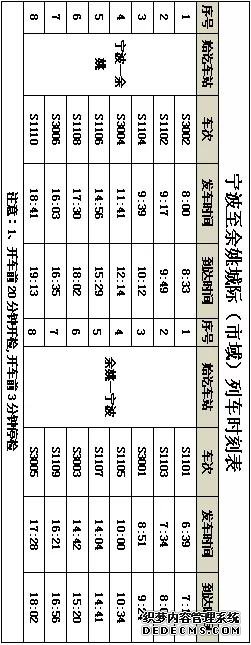 宁波至余姚城际（市域）列车时刻表
序号 始讫车站 车次 发车时间 到达时间 序号 始讫车站 车次 发车时间 到达
1 S3002 8:00 8:33 1 S1101 6:39
2 S1102 9:17 9:49 2 S1103 7:34
3 S1104 9:39 10:12 3 S3001 8:51
4 宁波—余姚 S3004 11:41 12:14 4 余姚—宁波 S1105 10:00 10:34
5 S1106 14:56 15:29 5 S1107 14:04 14:41
6 S1108 17:30 18:02 6 S3003 14:42 15:20
7 S3006 16:03 16:35 7 S1109 16:21 16:56
8 S1110 18:41 19:13 8 S3005 17:28 18:02
注意：1、开车前20分钟开检,开车前3分钟停检
织梦内容管理系统
DEDECMS.COM